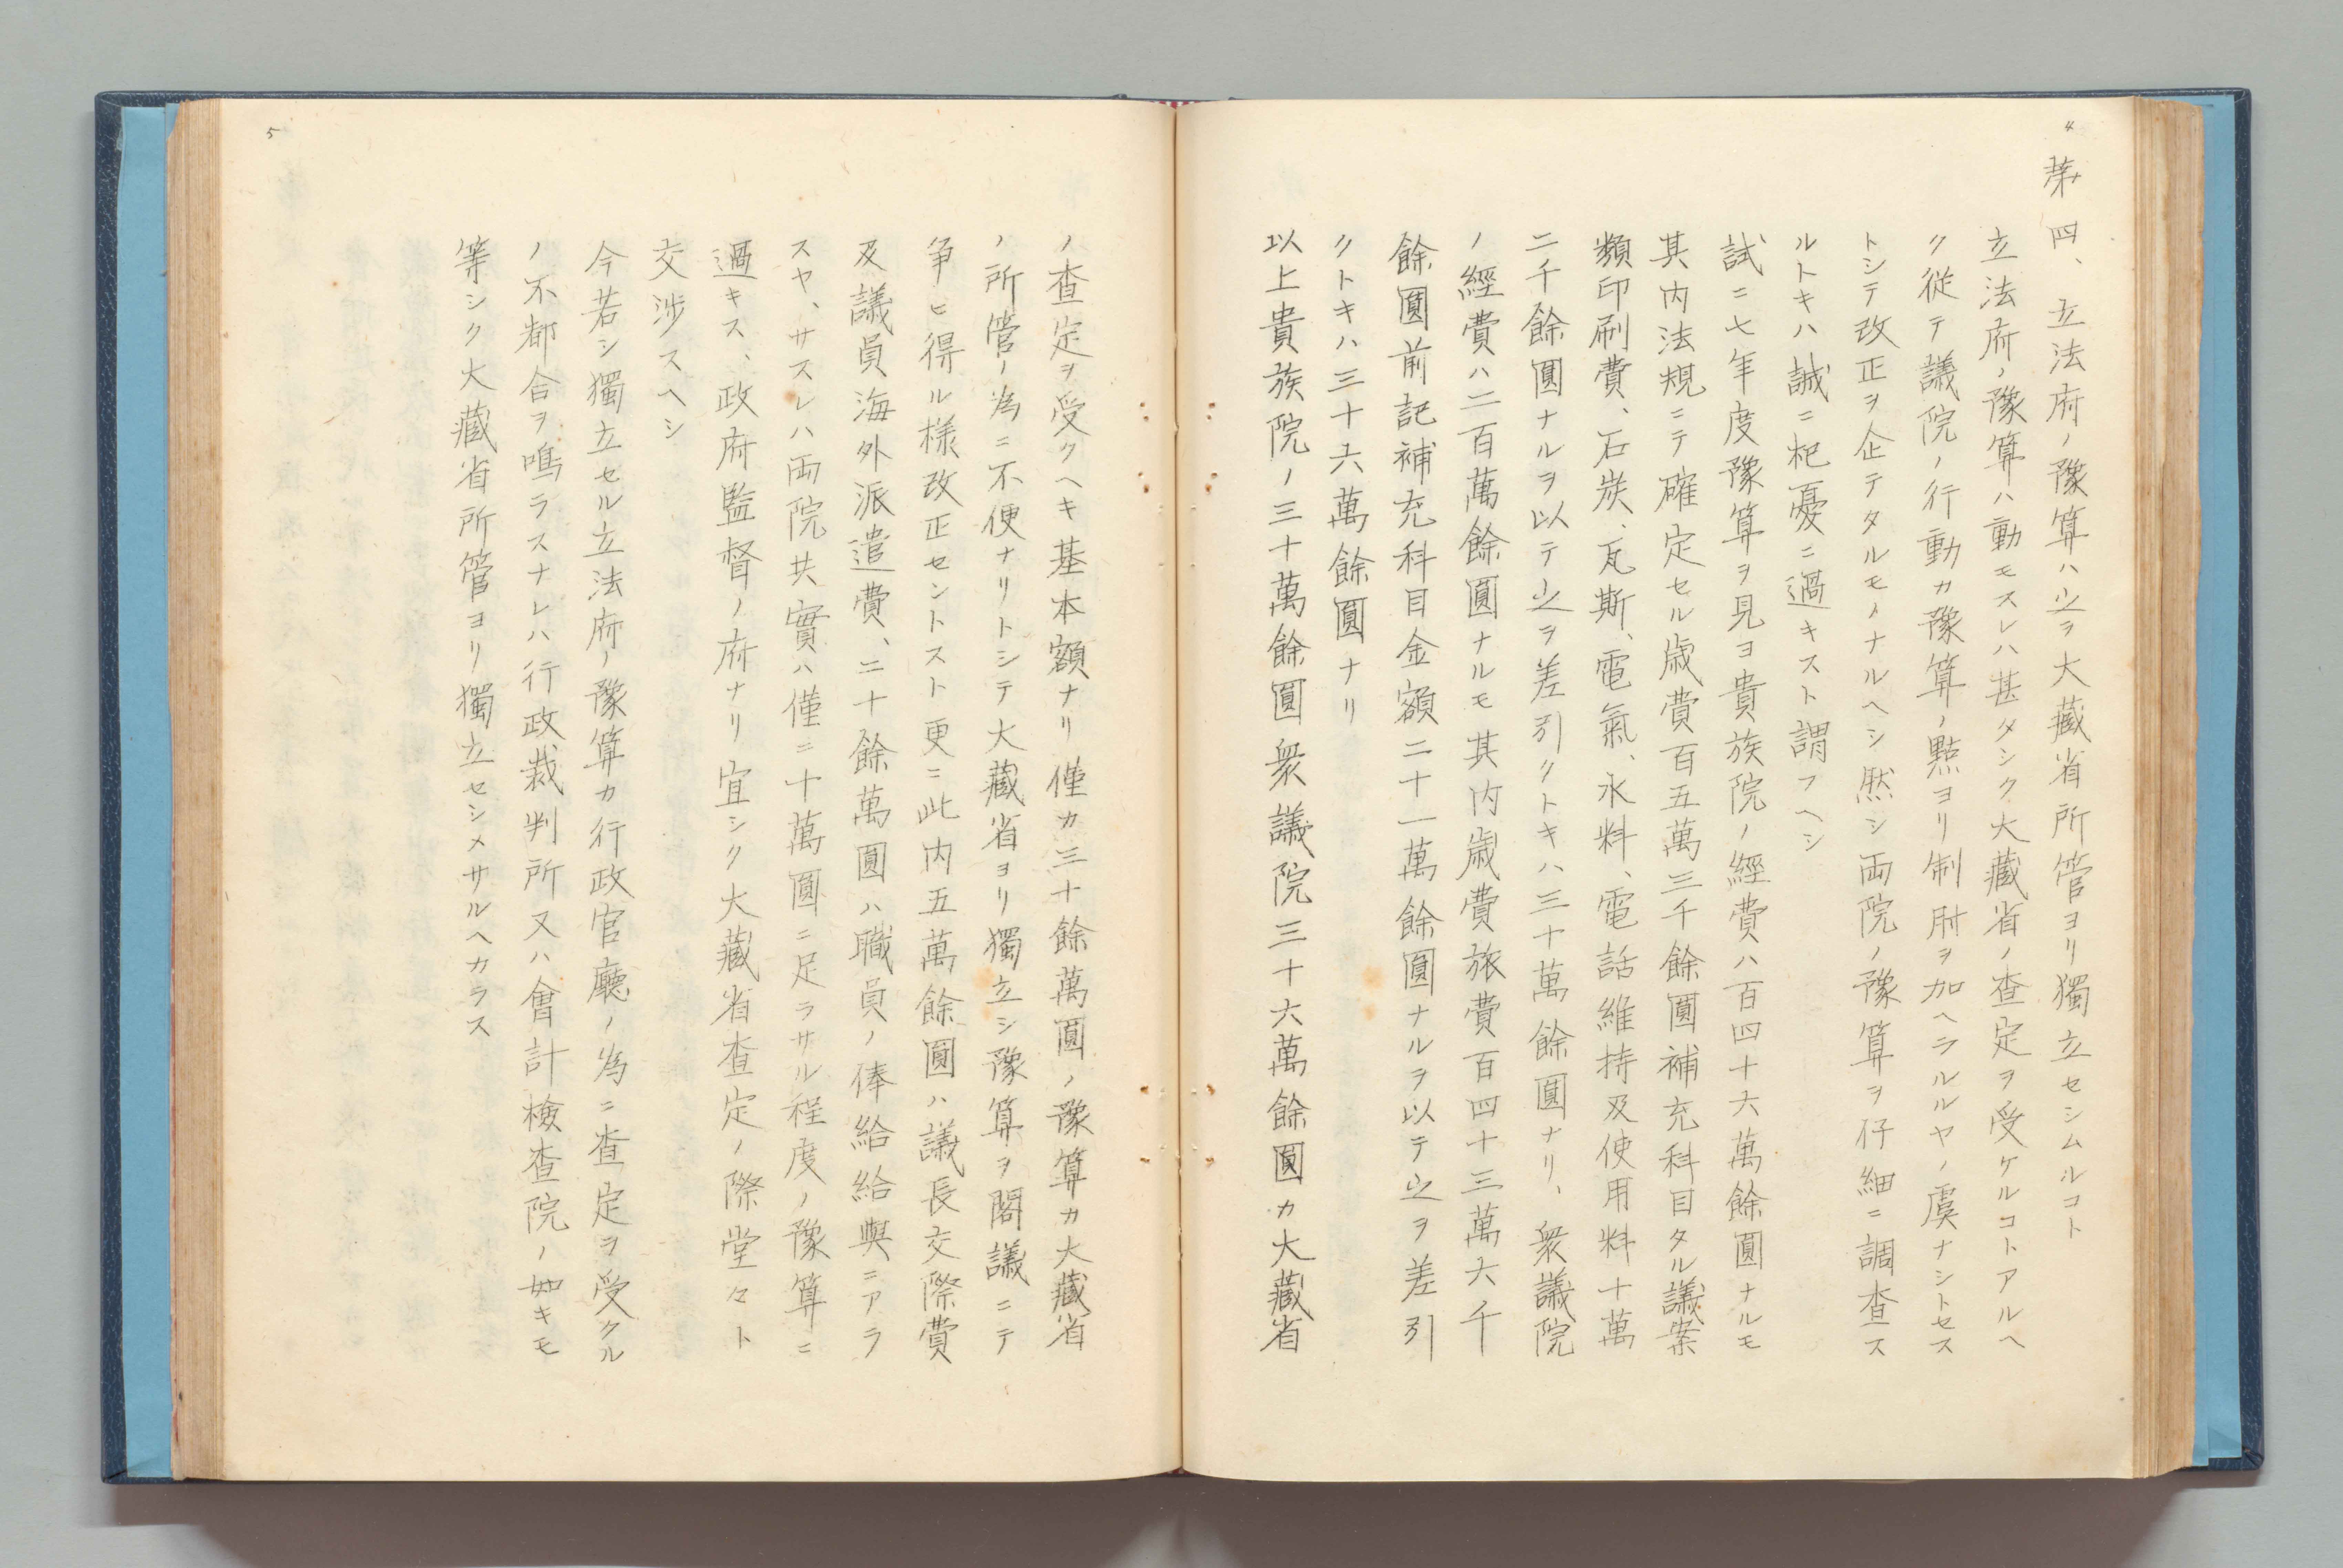 4
第四、立法府ノ豫算ハ之ヲ大藏省所管ヨリ獨立セシムルコト
立法府ノ豫算ハ動モスレハ甚タシク大藏省ノ査定ヲ受ケルコトアルヘ
ク従テ議院ノ行動カ豫算ノ點ヨリ制肘ヲ加ヘラルルヤノ虞ナシトセス
トシテ改正ヲ企テタルモノナルヘシ然シ両院ノ豫算ヲ仔細ニ調査ス
ルトキハ誠ニ杞憂ニ過キスト謂フヘシ
試ニ七年度豫算ヲ見ヨ貴族院ノ經費ハ百四十六萬餘圓ナルモ
其内法規ニテ確定セル歳費百五萬三千餘圓補充科目タル議案
類印刷費、石炭、瓦斯、電氣、水料、電話維持及使用料十萬
二千餘圓ナルヲ以テ之ヲ差引クトキハ三十萬餘圓ナリ、衆議院
ノ經費ハ二百萬餘圓ナルモ其内歳費旅費百四十三萬六千
餘圓前記補充科目金額二十一萬餘圓ナルヲ以テ之ヲ差引
クトキハ三十六萬餘圓ナリ
以上貴族院ノ三十萬餘圓衆議院三十六萬餘圓カ大藏省
5
ノ査定ヲ受クヘキ基本額ナリ僅カ三十餘萬圓ノ豫算カ大藏省
ノ所管ノ為ニ不便ナリトシテ大藏省ヨリ獨立シ豫算ヲ閣議ニテ
争ヒ得ル様改正セントスト更ニ此内五萬餘圓ハ議長交際費
及議員海外派遣費、二十餘萬圓ハ職員ノ俸給給與ニアラ
スヤ、サスレハ両院共實ハ僅ニ十萬圓ニ足ラサル程度ノ豫算ニ
過キス、政府監督ノ府ナリ宜シク大藏省査定ノ際堂々ト
交渉スヘシ
今若シ獨立セル立法府ノ豫算カ行政官廳ノ為ニ査定ヲ受クル
ノ不都合ヲ鳴ラスナレハ行政裁判所又ハ會計檢査院ノ如キモ
等シク大藏省所管ヨリ獨立セシメサルヘカラス